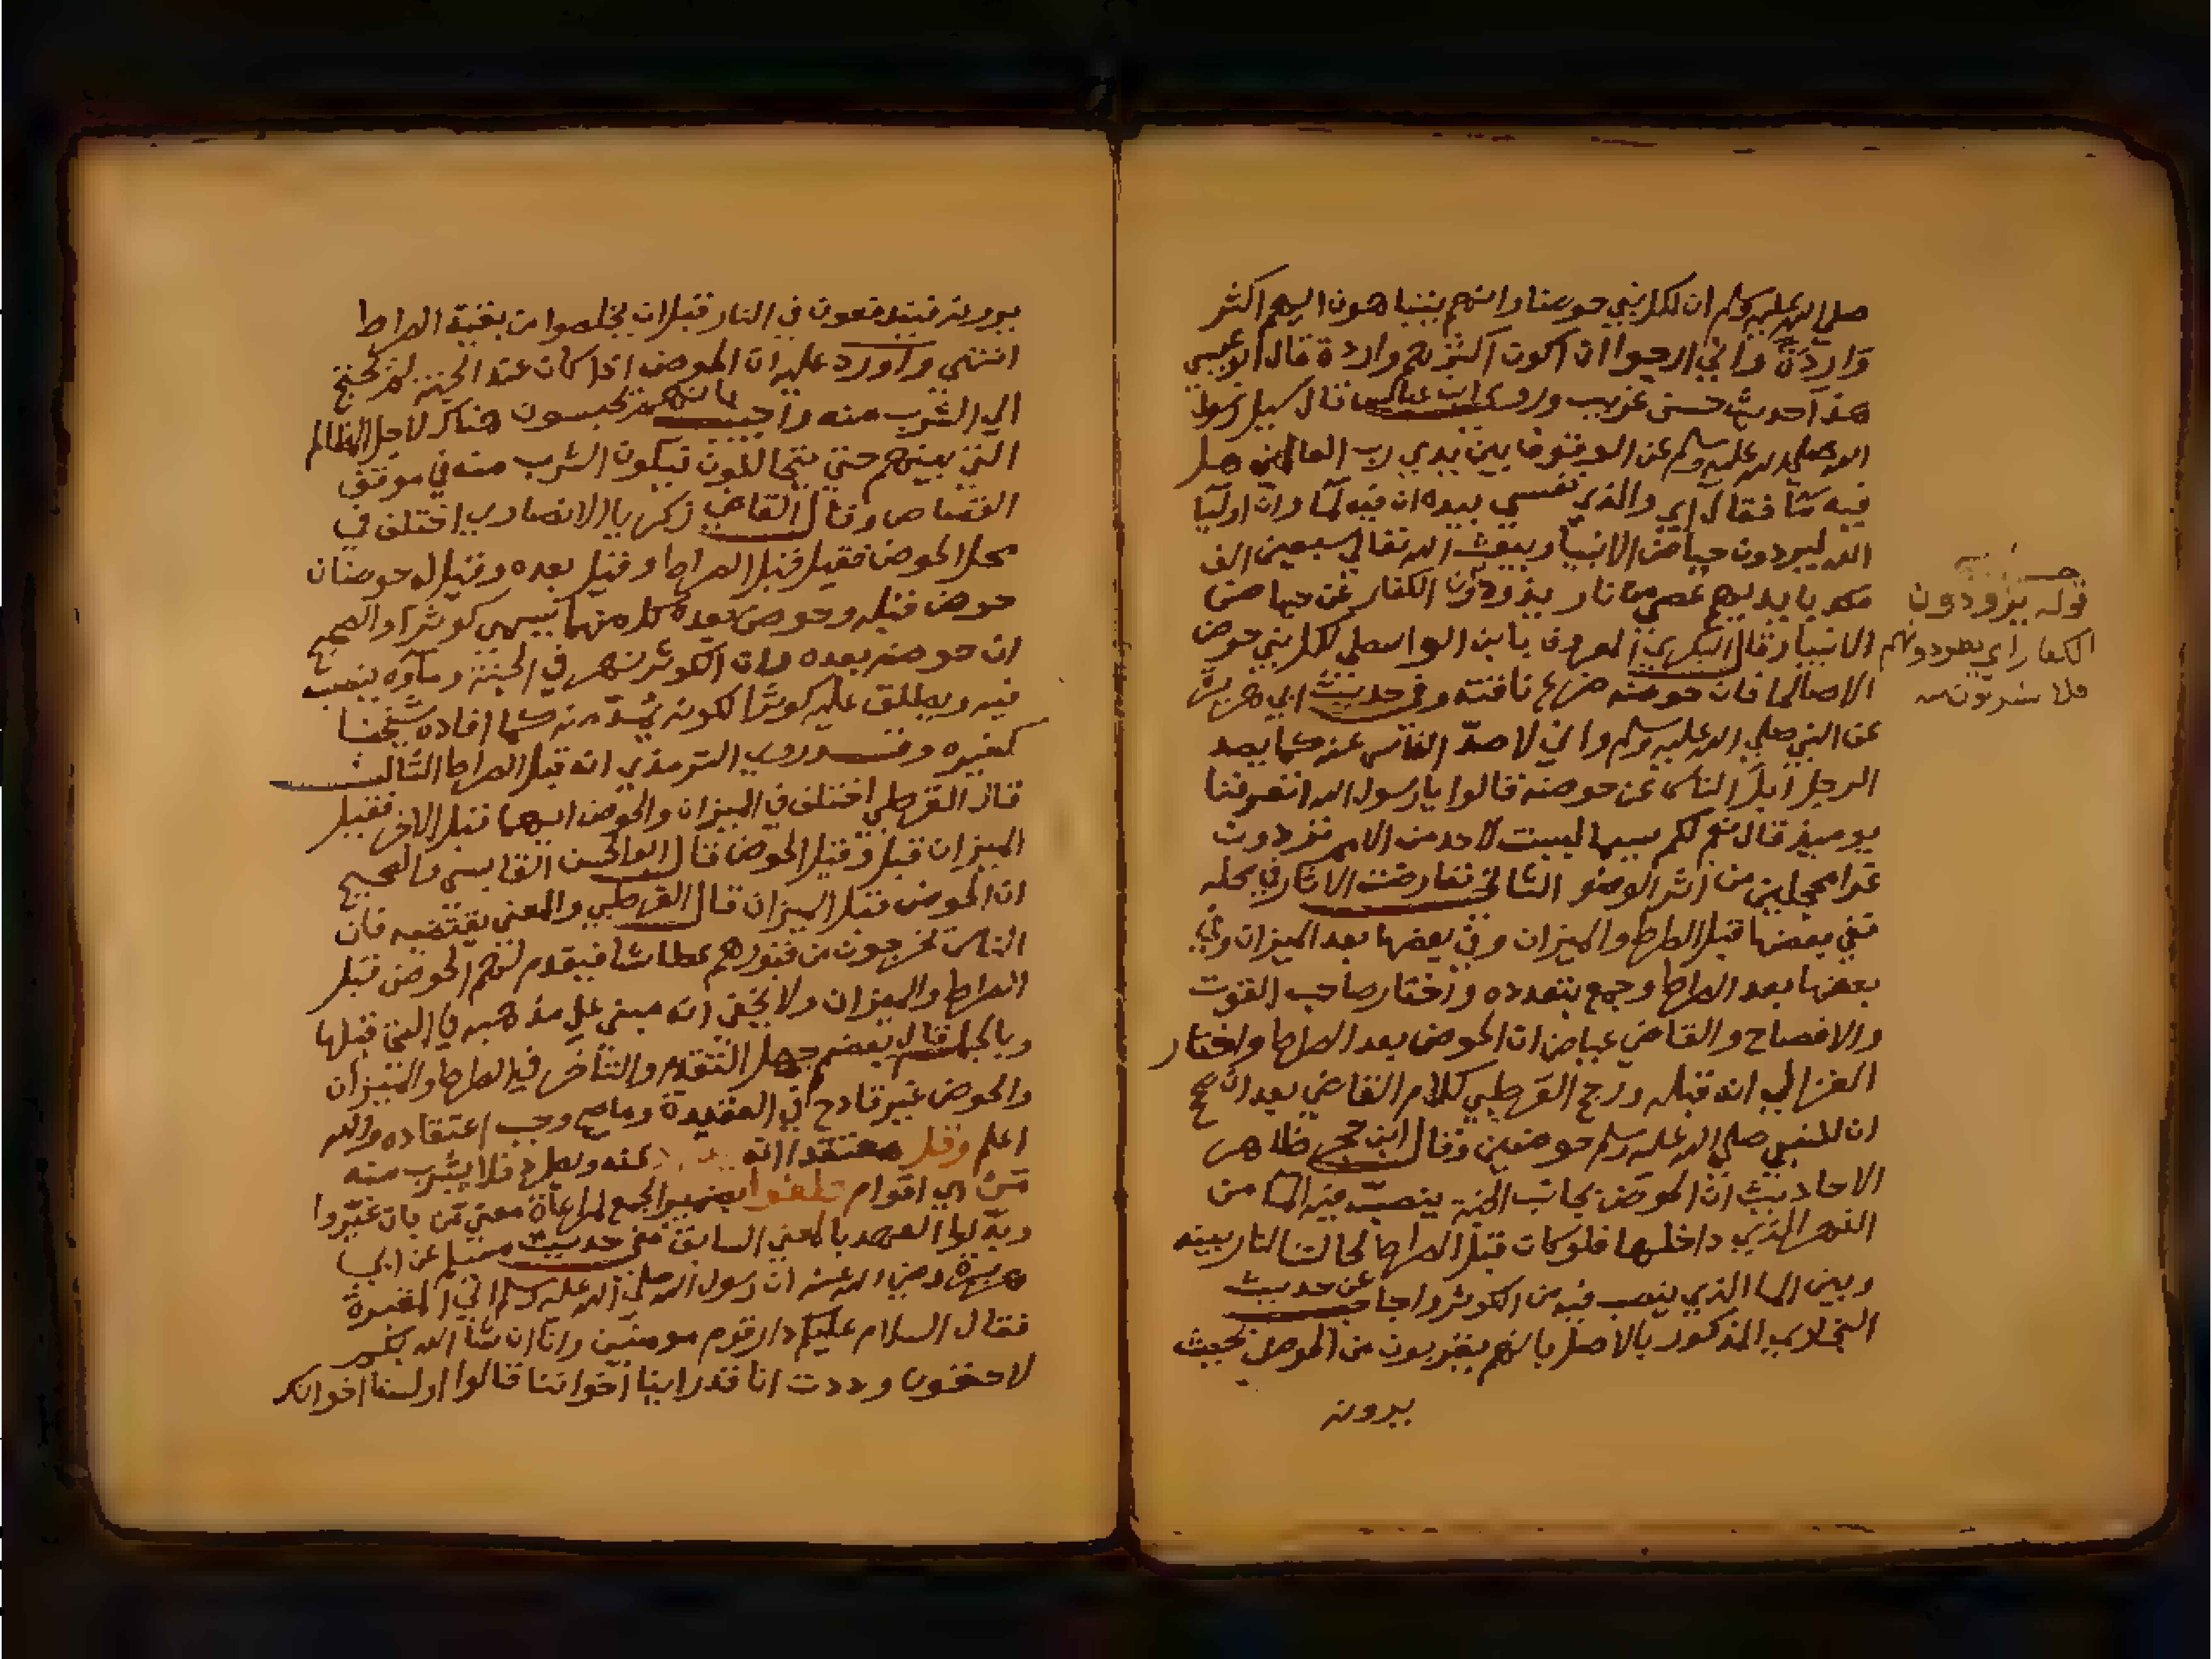 صلي الله عليه وسلم ان لكل نبي حوضا وانهم يتباهون ايهم اكثر
واردة واني ارجوا ان اكون اكثرهم واردة قال ابو عيسي
هذا حديث حسن غريب وروي ابن عباس قال سيل رسول
الله صلي الله عليه وسلم عن الوقوف بين يدي رب العالمين هل
فيه ما فقال اي والذي نفسي بيده ان فيه لما وان اوليا
الله ليردون حياض الانبيا ويبعث الله تعالي سبعين الف
ملك بايديهم عصي من نار يذودون الكفار عن حياض
الانبيا وقال البكري المعروف بابن الواسطي لكل نبي حوض
الا صالحا فان حوضه ضرع ناقته وفي حديث ابي هريرة
عن النبي صلي الله عليه وسلم واني لاصد الناس عنه كما يصد
الرجل ابل الناس عن حوضه قالوا يا رسول الله اتعرفنا
يوميذ قال نعم لكم سيما ليست لاحد من الامم تردون
غرا محجلين من اثر الوضو الثاني تعارضت الاثار في محله
ففي بعضها قبل الصراط والميزان وفي بعضها بعد الميزان وفي
بعضها بعد الصراط وجمع بتعدده واختار صاحب القوت
والافصاح والقاضي عياض ان الحوض بعد الصراط واختار
الغزالي انه قبله ورجح القرطبي كلام القاضي بعد ان صحح
ان للنبي صلي الله عليه وسلم حوضين وقال ابن حجر ظاهر
الاحاديث ان الحوض بجانب الجنة ينصب فيه الما من
النهر الذي داخلها فلو كان قبل الصراط لحالت النار بينه
وبين الما الذي ينصب فيه من الكوثر واجاب عن حديث
البخاري المذكور بالاصل بانهم يقربون من الحوض بحيث
يرونه
قوله يذودون
الكفار اي يطردونهم
فلا يشربون منه
يرونه فيدفعون في النار قبل ان يخلصوا من بقية الصراط
انتهي واورد عليه ان الحوض اذا كان عند الجنة لم يحتج
الي الشرب منه واجيب بانهم يحبسون هناك لاجل المظالم
التي بينهم حتي يتحاللون فيكون الشرب منه في موقف
القصاص وقال القاضي زكريا الانصاري اختلف في
محل الحوض فقيل قبل الصراط وقيل بعده وقيل له حوضان
حوض قبله وحوض بعده كل منهما يسمي كوثرا والصحيح
ان حوضه بعده وان الكوثر نهر في الجنة وماؤه ينصب
فيه ويطلق عليه كوثرا لكونه يمد منه كما افاده شيخنا
كغيره وقد روي الترمذي انه قبل الصراط الثالث
قال القرطبي اختلف في الميزان والحوض ايهما قبل الاخر فقيل
الميزان قبل وقيل الحوض قال ابو الحسن القابسي والصحيح
ان الحوض قبل الميزان قال القرطبي والمعني يقتضيه فان
الناس يخرجون من قبورهم عطاشا فيقدم لهم الحوض قبل
الصراط والميزان ولا يخفي انه مبني علي مذهبه في التي قبلها
وبالجملة قال بعضهم جهل التقدم والتاخر في الصراط والميزان
والحوض غير قادح في العقيدة وما صح وجب اعتقاده والله
اعلم وقل معتقدا انه عنه ويطرح فلا يشرب منه
من اي اقوام طغوا بضمير الجمع لمراعاة معني من بان غيروا
وبدلوا العهد بالمعني السابق ففي حديث مسلم عن ابي
هريرة رضي الله عنه ان رسول الله صلي الله عليه وسلم اتي المقبرة
فقال السلام عليكم دار قوم مومنين وانا ان شا الله بكم
لاحقون وددت انا قد راينا اخواننا قالوا اولسنا اخوانك